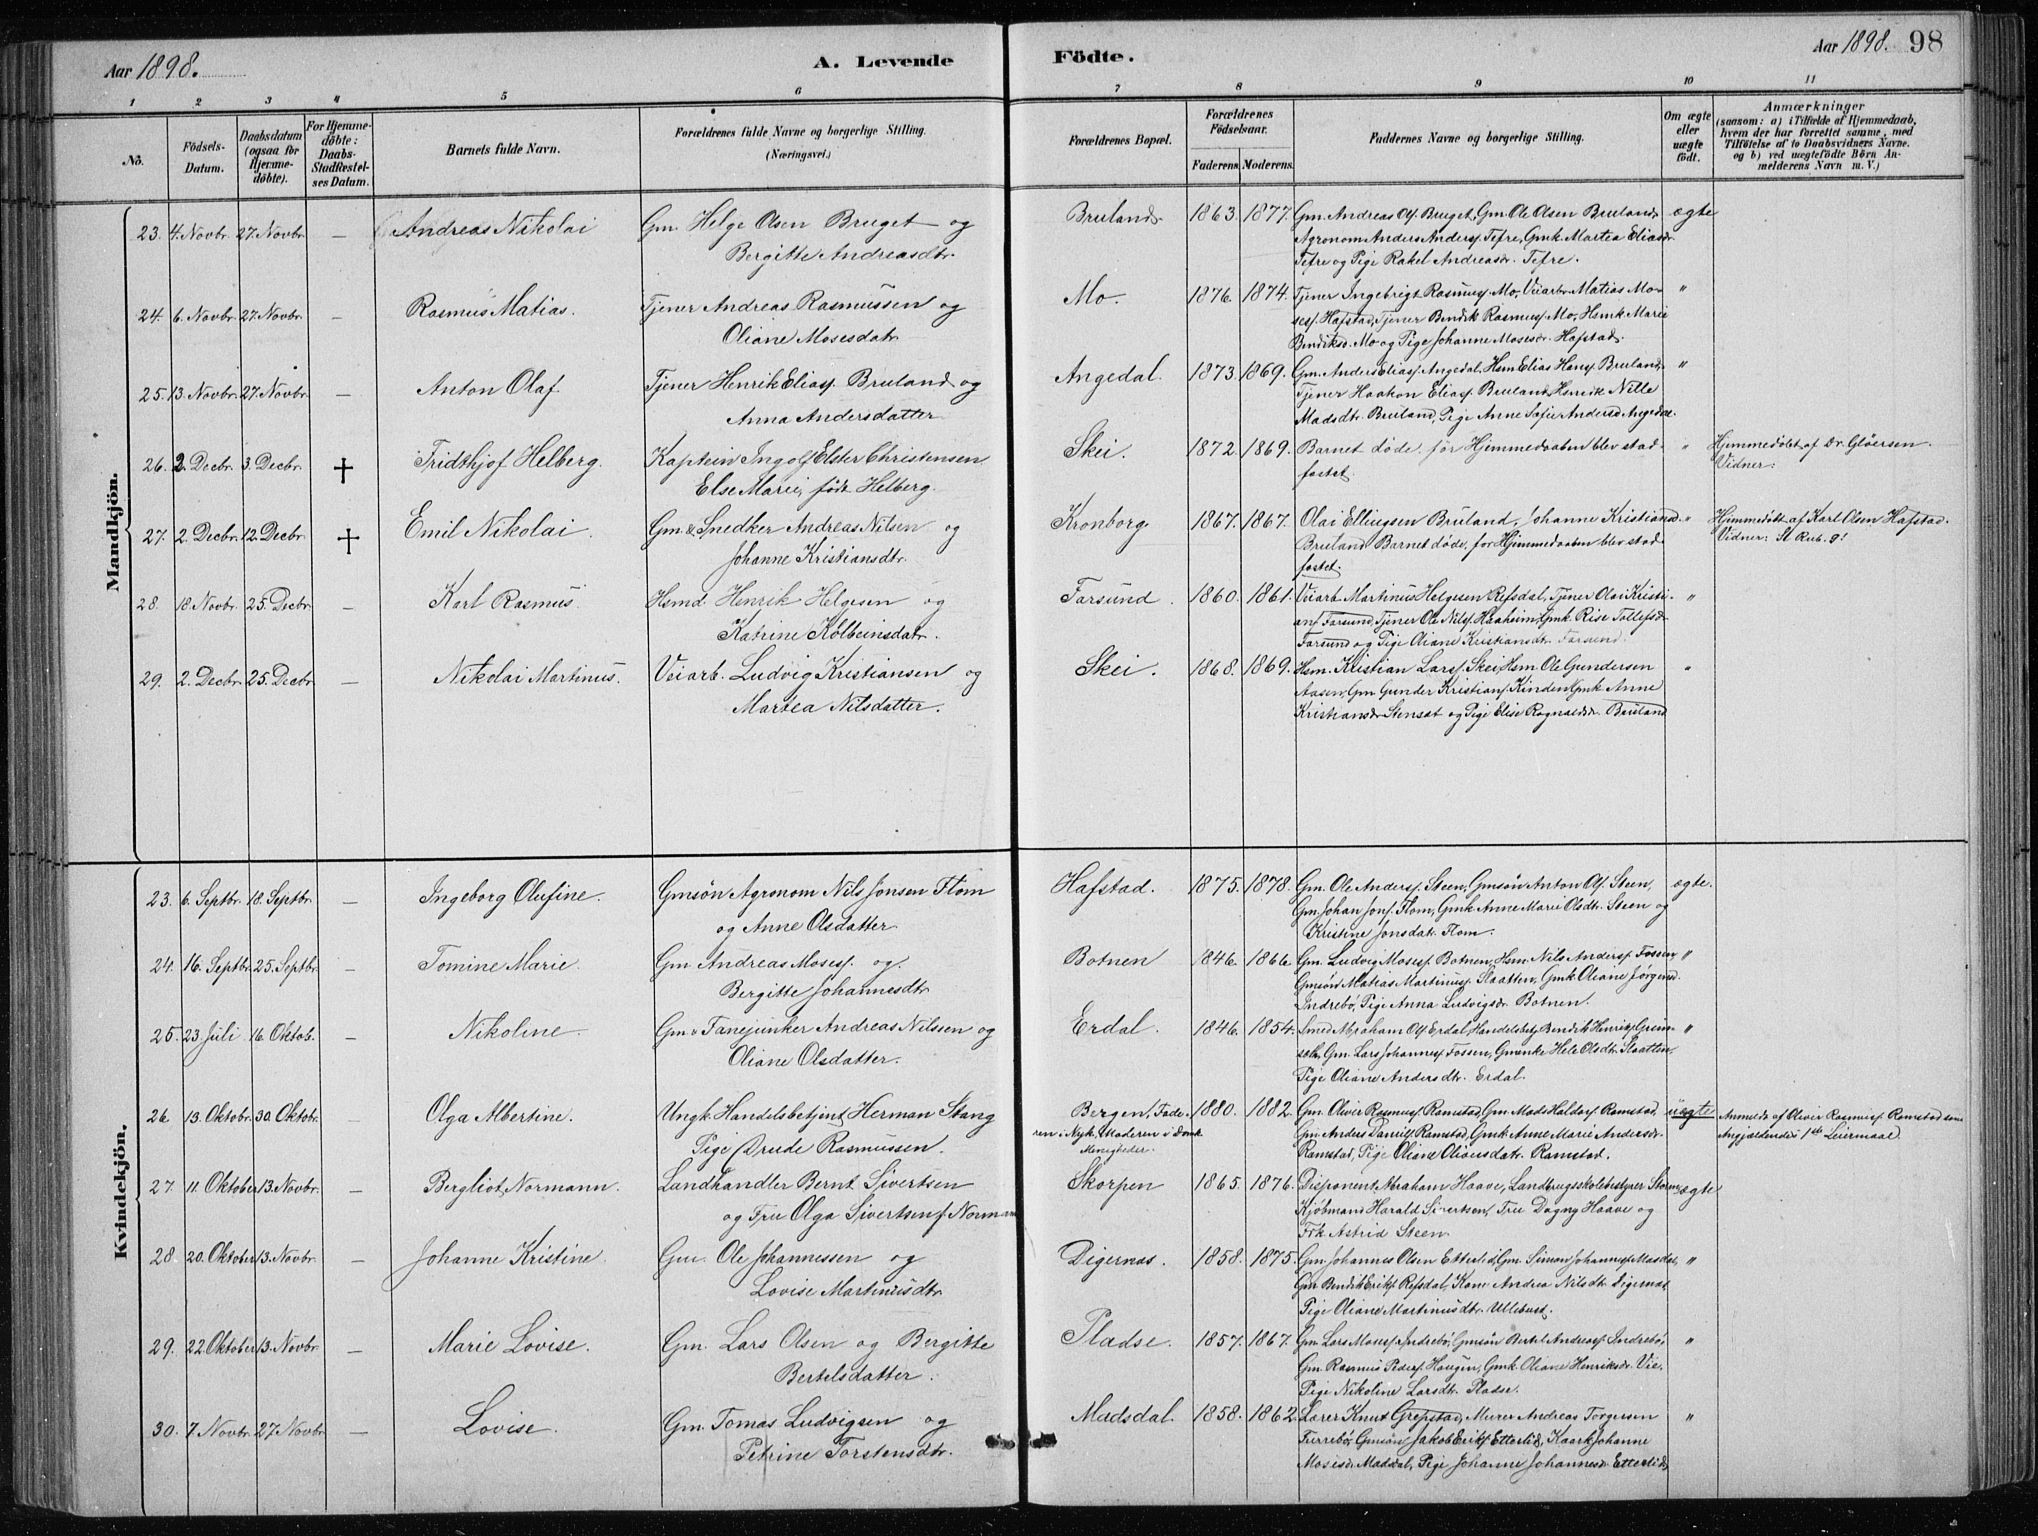 Aar 1898.
A. Levende
Födte.
Aar 1898. 98
1 2 3 4 5 6 7 8 9 10 11
No.
Födsels-
Datum.
Daabsdatum
(ogsaa for
Hjemme-
döbte).
For Hjemme-
döbte:
Daabs-
Stadfæstel-
ses Datum.
Barnets fulde Navn.
Forældrenes fulde Navne og borgerlige Stilling.
(Næringsvei.)
Forældrenes Bopæl.
Forældrenes
Födselsaar.
Faderens. Moderens.
Faddernes Navne og borgerlige Stilling.
Om ægte
eller
uægte
födt.
Anmærkninger
(saasom: a) i Tilfælde af Hjemmedaab,
hvem der har forrettet samme, med
Tilföielse af to Daabsvidners Navne.
og b) ved uægtefödte Börn An-
melderens Navn m. V.)
Mandkjön.
23. 4. Novbr. 27. Novbr. — Andreas Nikolai Gm. Helge Olsen Bruget og
Bergitte Andreasdtr.
Bruland. 1863. 1877. Gm. Andreas Ols. Bruget, Gm. Ole Olsen Bruland, ægte
Agronom Anders Anders. Tefre, Gmk. Martea Eliasdr.
Tefre og Pige Rakel Andreasdr. Tefre.
24. 6. Novbr. 27. Novbr. — Rasmus Matias. Tjener Andreas Rasmussen og
Oliane Mosesdatr.
Mo. 1876. 1874. Tjener Ingebrigt Rasmuss. Mo, Veiarb. Matias Mo- "
sess. Hafstad, Tjener Bendik Rasmuss. Mo, Hsmk. Marie
Bendiksd. Mo og Pige Johanne Mosesdr. Hafstad.
25. 13. Novbr. 27. Novbr. — Anton Olaf. Tjener Henrik Eliass. Bruland og
Anna Andersdatter
Angedal. 1873. 1869. Gm. Anders Eliass. Angedal, Hsm. Elias Hans. Bruland, "
Tjener Haakon Eliass. Bruland, Nille
Madsdtr. Bruland, Pige Anne Sofie Andersd. Angedal.
26. 2. Decbr. 3. Decbr. † Fridthjof Helberg. Kaptein Ingolf Elster Christensen
Else Marie, född Helberg.
Skei. 1872. 1869. Barnet döde för Hjemmedaaben blev stad- " Hjemmedöbt af Dr. Glöersen.
fæstet. Vidner:
27. 2. Decbr. 12. Decbr † Emil Nikolai. Gm & Snedker Andreas Nilsen og
Johanne Kristiansdtr.
Kronborg 1867. 1867. Olai Ellingsen Bruland, Johanne Kristiansd. " Hjemmedöbt af Karl Olsen Hafstad.
Bruland. Barnet döde, för Hjemmedaaben blev stad- Vidner: Se Rub. 9!
fæstet.
28. 18. Novbr. 25. Decbr. — Karl Rasmus. Hsmd. Henrik Helgesen og
Katrine Kolbeinsdatr.
Farsund. 1860. 1861. Veiarb. Martinus Helgesen Refsdal, Tjener Olai Kristi- "
ans. Farsund, Tjener Ole Nils. Haaheim, Gmk. Rise Tollefsdr.
Farsund og Pige Oliane Kristiansdtr. Farsund.
29. 2. Decbr. 25. Decbr — Nikolai Martinus. Veiarb. Ludvig Kristiansen og
Martea Nilsdatter.
Skei. 1868. 1869. Hsm. Kristian Lars. Skei, Hsm. Ole Gundersen "
Aasen, Gm. Gunder Kristians. Kinden, Gmk. Anne
Kristiansdr. Stensæt og Pige Elise Ragnaldsdr. Bruland
Kvindekjön.
23. 6. Septbr. 18. Septbr. — Ingeborg Olufine. Gmsön Agronom Nils Jonsen Flom
og Anne Olsdatter
Hafstad. 1875. 1878. Gm. Ole Anders. Steen, Gmsön Anton Ols. Steen, ægte.
Gm. Johan Jons. Flom, Gmk. Anne Marie Olsdtr. Steen og
Kristine Jonsdatr. Flom.
24. 16. Septbr. 25. Septbr. — Tomine Marie. Gm. Andreas Moses. og
Bergitte Johannesdtr.
Botnen 1846. 1866. Gm. Ludvig Moses. Botnen, Hsm. Nils Anders. Fossen "
Gmsön Matias Martinus. Slaatten, Gmk. Oliane Jörgensd.
Indrebö, Pige Anna Ludvigsdr. Botnen.
25. 23. Juli 16. Oktob. — Nikoline. Gm. & Fanejunker Andreas Nilssen og
Oliane Olsdatter.
Erdal. 1846. 1854. Smed Abraham Ols. Erdal, Handelsbetj. Bendik Henriks. Grim- "
sæth, Gm. Lars Johannes. Fossen, Gmenke Hele Olsdtr. Slaatten,
Pige Oliane Andersdtr. Erdal.
26 13. Oktobr. 30. Oktobr. — Olga Albertine. Ungk. Handelsbetjent Herman Stang
Pige Drude Rasmussen.
Bergen, Fade- 1880. 1882. Gm. Oliver Rasmus. Ramstad, Gm. Mads Haldors. Ramstad, uægte Anmeldt af Oliver Rasmuss. Ramstad som
ren i Nyk., Moderen i Domk. Gm. Anders Daniels. Ramstad, Gmk. Anne Marie Andersdr. Angjældendes 1ste Leiermaal.
Menigheder. Ramstad, Pige Oliane Oliversdatr. Ramstad.
27. 11. Oktober 13. Novbr. — Bergliot Normann. Landhandler Bernt Sivertsen
og Fru Olga Sivertsen f. Normann
Skorpen 1865. 1876. Disponent Abraham Haave, Landbrugsskolebestyrer Storm, ægte
Kjöbmand Harald Sivertsen, Fru Dagny Haave og
Frk Astrid Steen.
28 20. Oktober 13. Novbr. — Johanne Kristine. Gm. Ole Johannessen og
Lovise Martinusdtr.
Digernæs. 1858. 1875. Gm. Johannes Olsen Etterlid, Gm. Simon Johannes. Masdal, "
Gm. Bendik Eriks. Refsdal, Kone Andrea Nilsdtr. Digernæs,
Pige Oliane Martinusdtr. Ullebust.
29. 22. Oktober 13. Novbr — Marie Lovise. Gm. Lars Olsen og Bergitte
Bertelsdatter.
Pladse. 1857. 1867. Gm. Lars Moses. Indrebö, Gmsön Bertel Andreas. Indrebö, "
Gm. Rasmus Peders. Haugen, Gmk. Oliane Henriksdr. Vie,
Pige Nikoline Larsdtr. Pladse.
30. 7. Novbr. 27 Novbr. — Lovise. Gm. Tomas Ludvigsen og
Petrine Torstensdtr.
Madsdal. 1858. 1862. Lærer Knut Grepstad, Murer Andreas Torgersen "
Furrebö, Gmsön Jakob Eriks. Etterlid, Johanne
Mosesdr. Masdal, Pige Johanne Johannesdr. Etterlid.